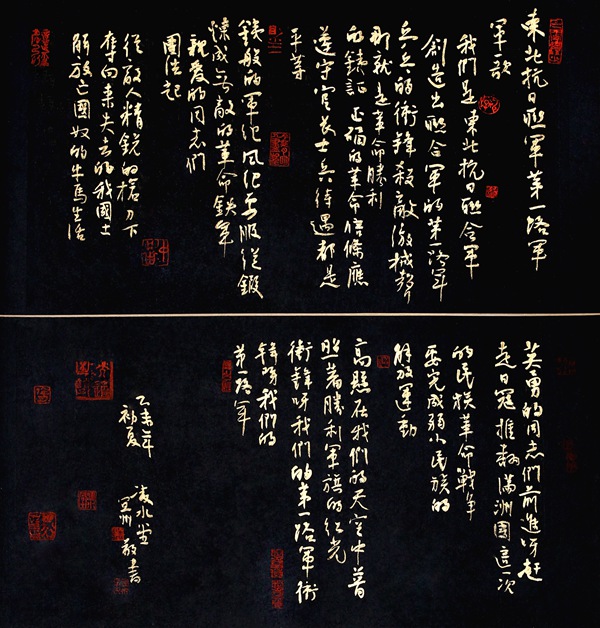 東北抗日联軍第一路軍
軍歌
我們是東北抗日联合軍
創造出联合軍的第一路軍
乒乓的衝鋒殺敵繳械聲
那就是革命勝利
的鉄証 正确的革命信條應
遵守官長士兵待遇都是
平等
鉄般的軍紀風紀要服從鍛
煉成無敵的革命鉄軍
親愛的同志們
團結起
從敵人精銳的槍刀下
奪回來失去的我國土
解放亡國奴的牛馬生活
英勇的同志們前進呀赶
走日寇推翻滿洲國這一次
的民族革命戰争
要完成弱小民族的
解放運動
高懸在我們的天空中普
照著勝利軍旗的紅光
衝鋒呀我們的第一路軍衝
鋒呀我們的
第一路軍
乙未年
初夏
凌水堂
敬書